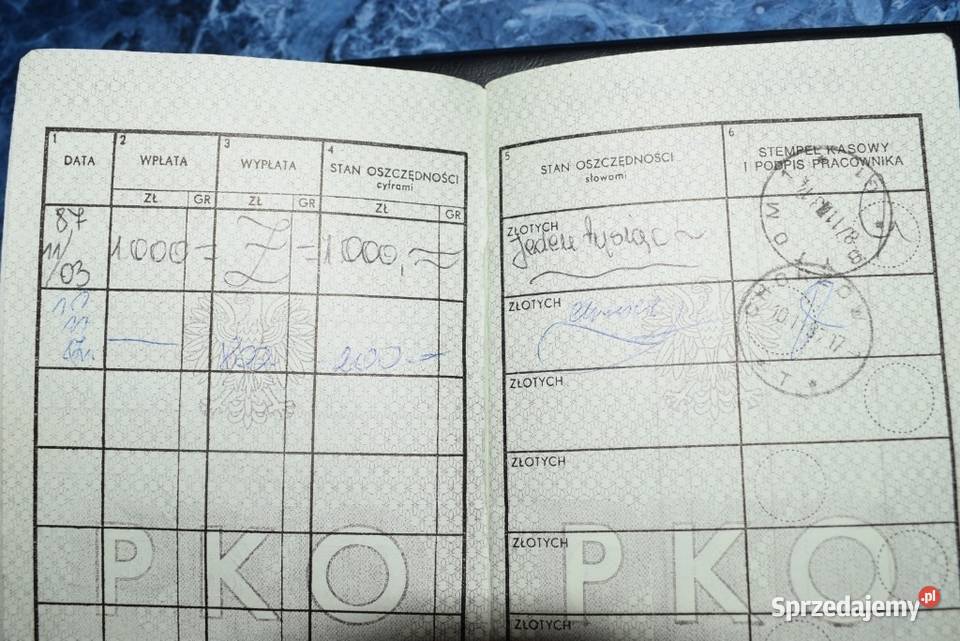 1 DATA
2 WPŁATA
3 WYPŁATA
4 STAN OSZCZĘDNOŚCI
cyframi
ZŁ GR ZŁ GR ZŁ GR
5 STAN OSZCZĘDNOŚCI
słowami
6 STEMPEL KASOWY
I PODPIS PRACOWNIKA
87
11/
/03
1000 = Z = 1000,=
ZŁOTYCH
jeden tysiąc
— 800 200 —
ZŁOTYCH
dwieście
ZŁOTYCH
ZŁOTYCH
ZŁOTYCH
ZŁOTYCH
PKO PKO
Sprzedajemy.pl